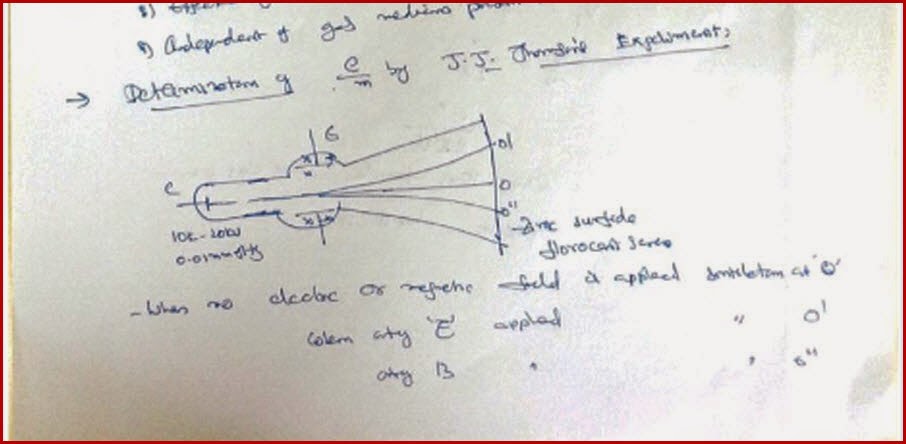 8) Independent of gas medium
→ Determination of e/m by J.J. Thomson's Experiment:
G
C
O'
O
O"
10k-20kV
0.01mmofHg
Zinc sulfide
florocent screen
- When no electric or magnetic field is applied scintilation at 'O'
When only 'E' applied " O'
only B " " O"